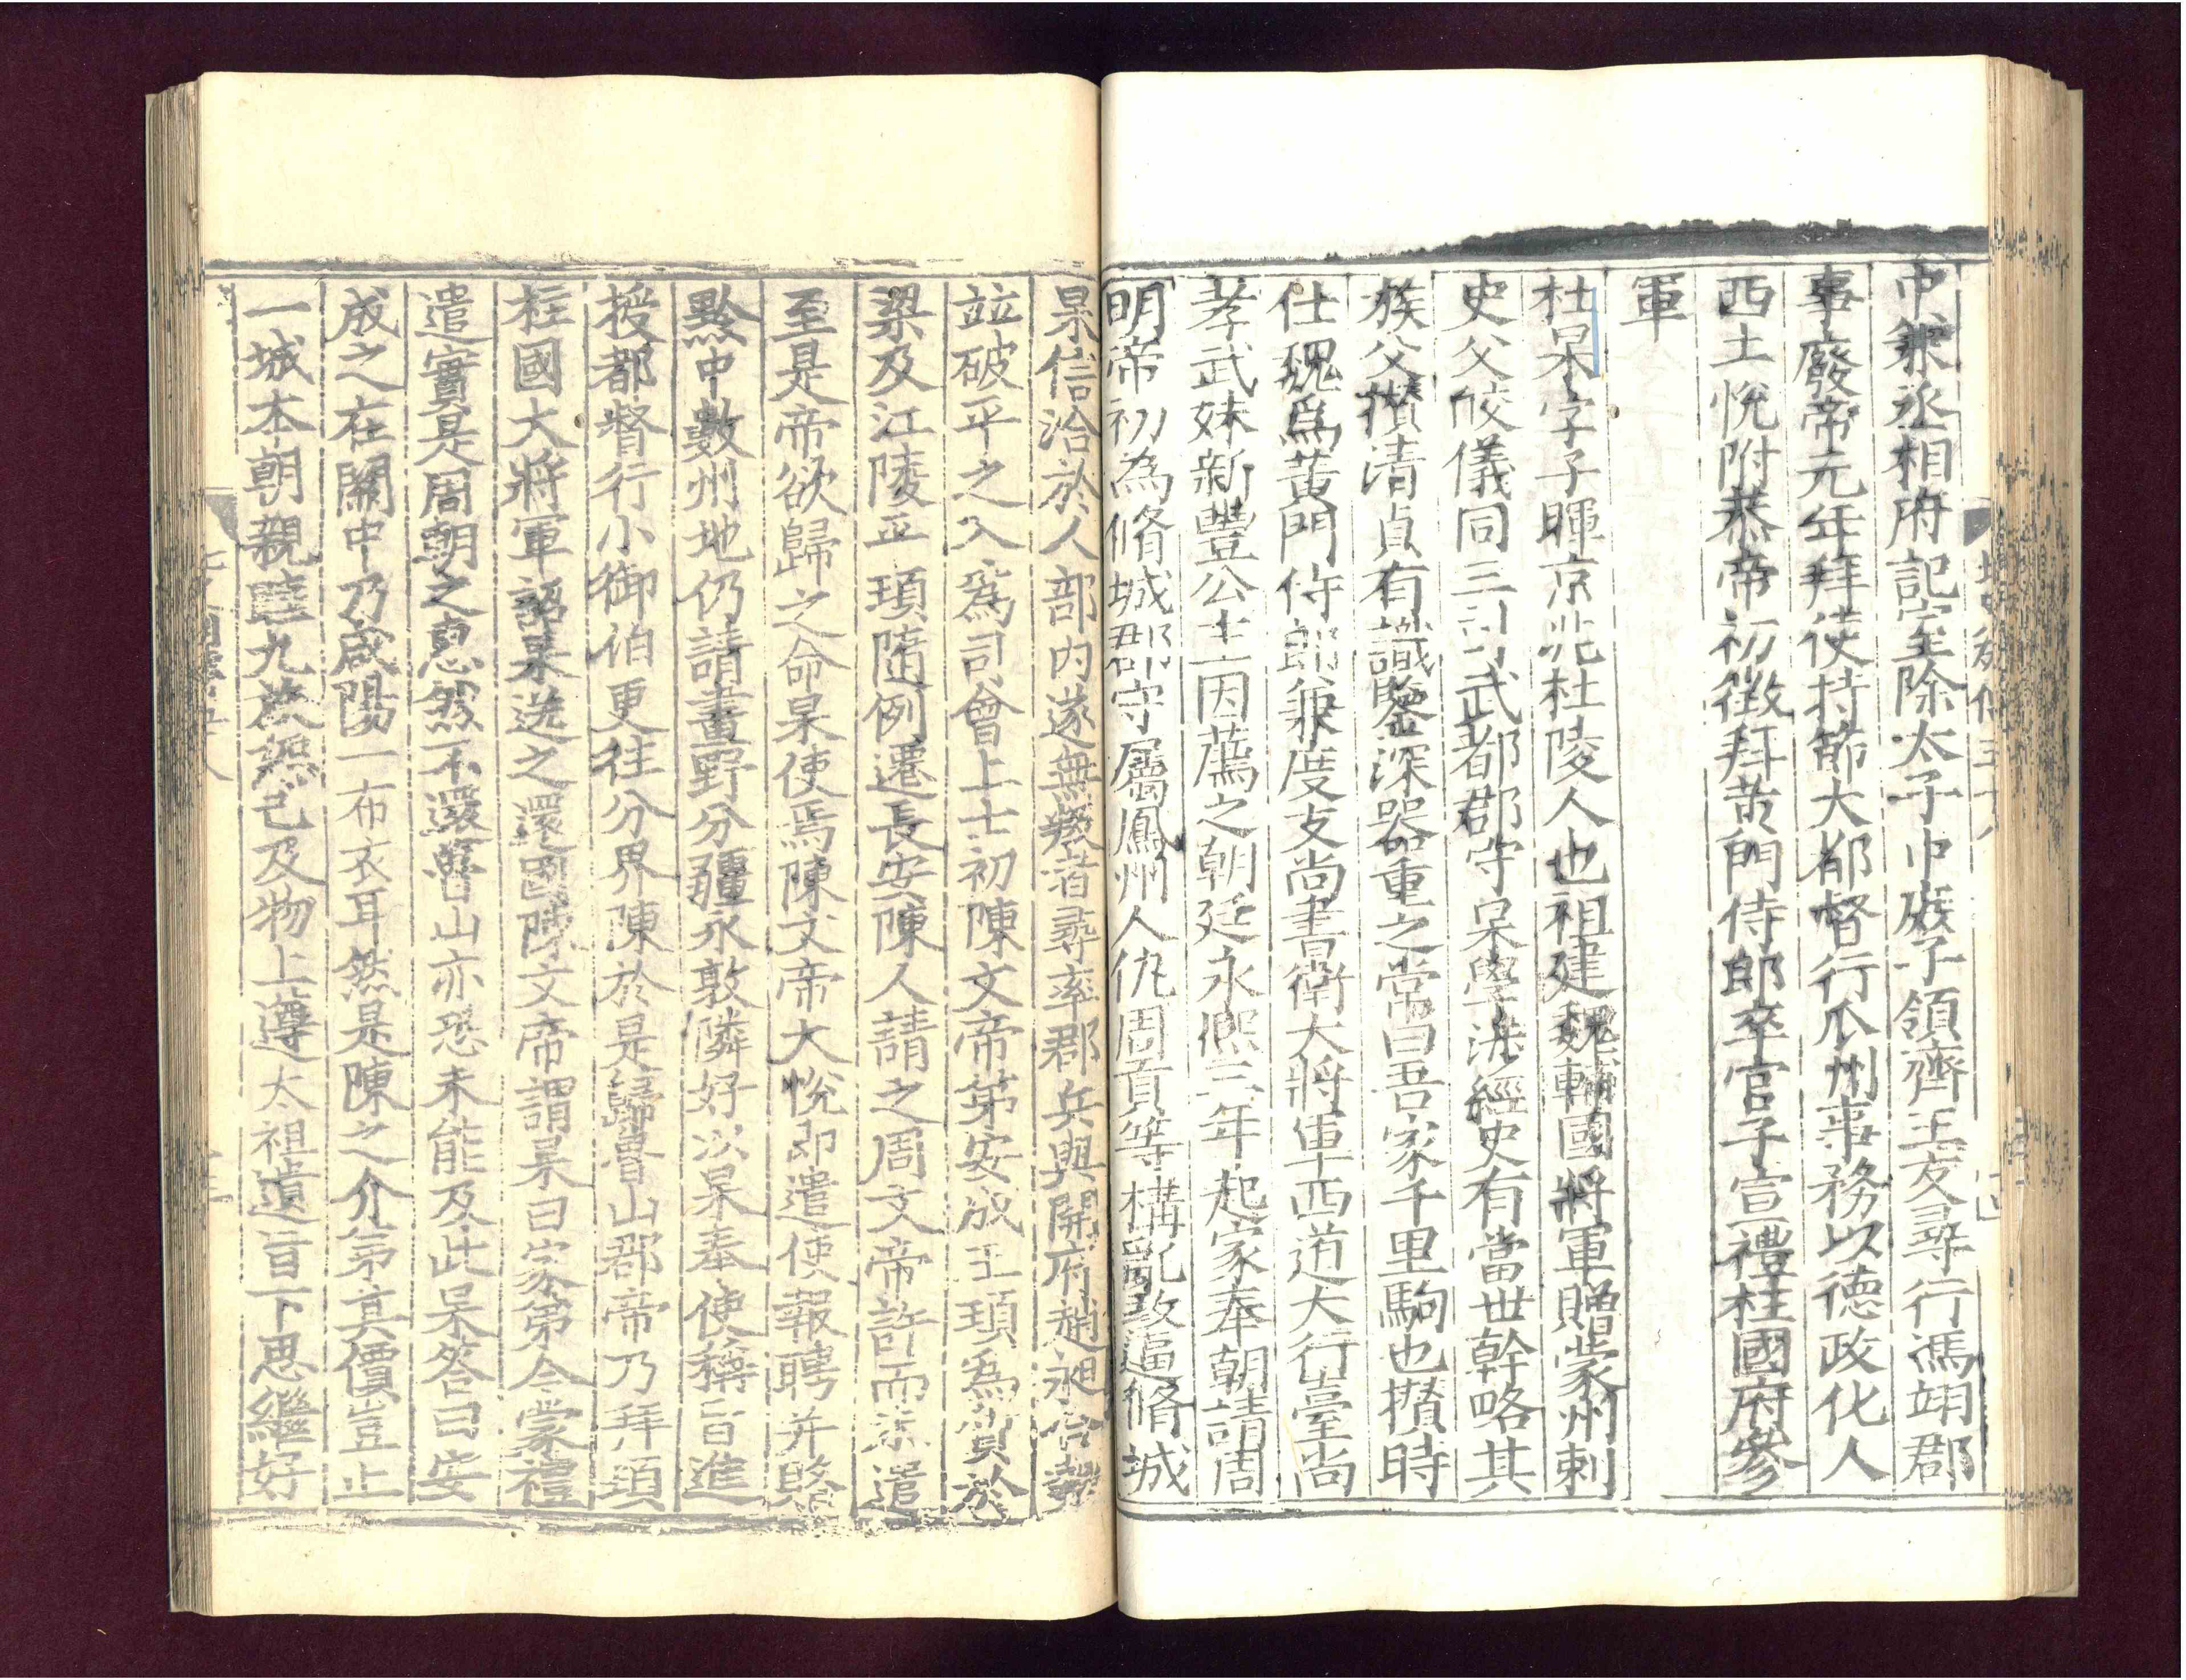 中兼丞相府記室除太子中庶子領齊王友尋行馮翊郡
事廢帝元年拜使持節大都督行瓜州事務以德政化人
西土悅附恭帝初徵拜黃門侍郎卒官子宣禮柱國府參
軍
杜杲字子暉京兆杜陵人也祖建魏輔國將軍贈蒙州刺
史父皎儀同三司武都郡守杲學涉經史有當世幹略其
族父攢清貞有識鑒深器重之常曰吾家千里駒也攢時
仕魏爲黃門侍郎兼度支尚書衛大將軍西道大行臺尚
孝武妹新豐公主因薦之朝廷永熙三年起家奉朝請周
明帝初為脩城郡守屬鳳州人仇周貢等構亂攻逼脩城
杲信洽於人部內遂無叛者尋率郡兵與開府趙昶合勢
並破平之入爲司會上士初陳文帝第安成王頊爲質於
梁及江陵平頊隨例遷長安陳人請之周文帝許而未遣
至是帝欲歸之命杲使焉陳文帝大悅即遣使報聘并賂
黔中數州地仍請畫野分疆永敦隣好以杲奉使稱旨進
授都督行小御伯更往分界陳於是歸魯山郡帝乃拜頊
柱國大將軍詔杲送之還國陳文帝謂杲曰家弟今蒙禮
遣實是周朝之惠然不還魯山亦恐未能及此杲答曰安
成之在關中乃咸陽一布衣耳然是陳之介弟其價豈止
一城本朝親睦九族恕己及物上遵太祖遺旨下思繼好